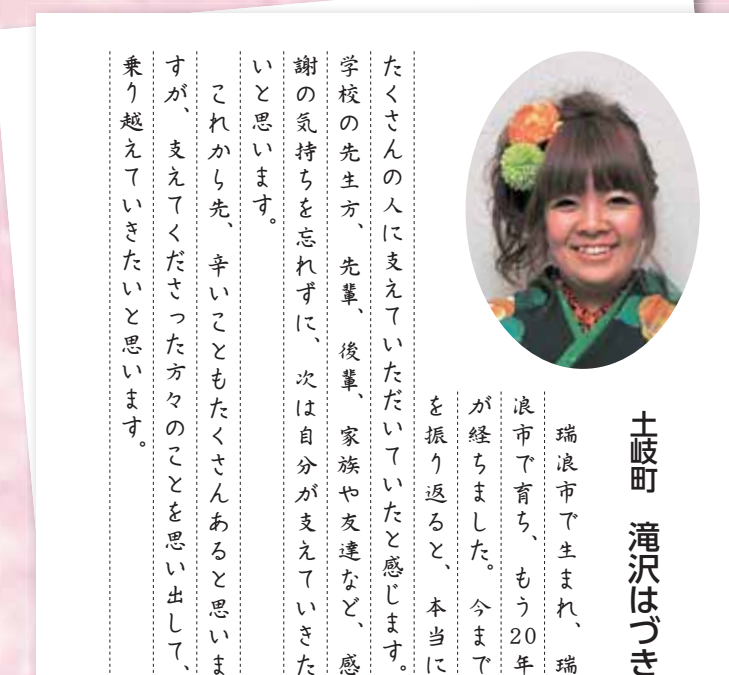 土岐町　滝沢はづき
瑞浪市で生まれ、瑞
浪市で育ち、もう20年
が経ちました。今まで
を振り返ると、本当に
たくさんの人に支えていただいていたと感じます。
学校の先生方、先輩、後輩、家族や友達など、感
謝の気持ちを忘れずに、次は自分が支えていきた
いと思います。
これから先、辛いこともたくさんあると思いま
すが、支えてくださった方々のことを思い出して、
乗り越えていきたいと思います。